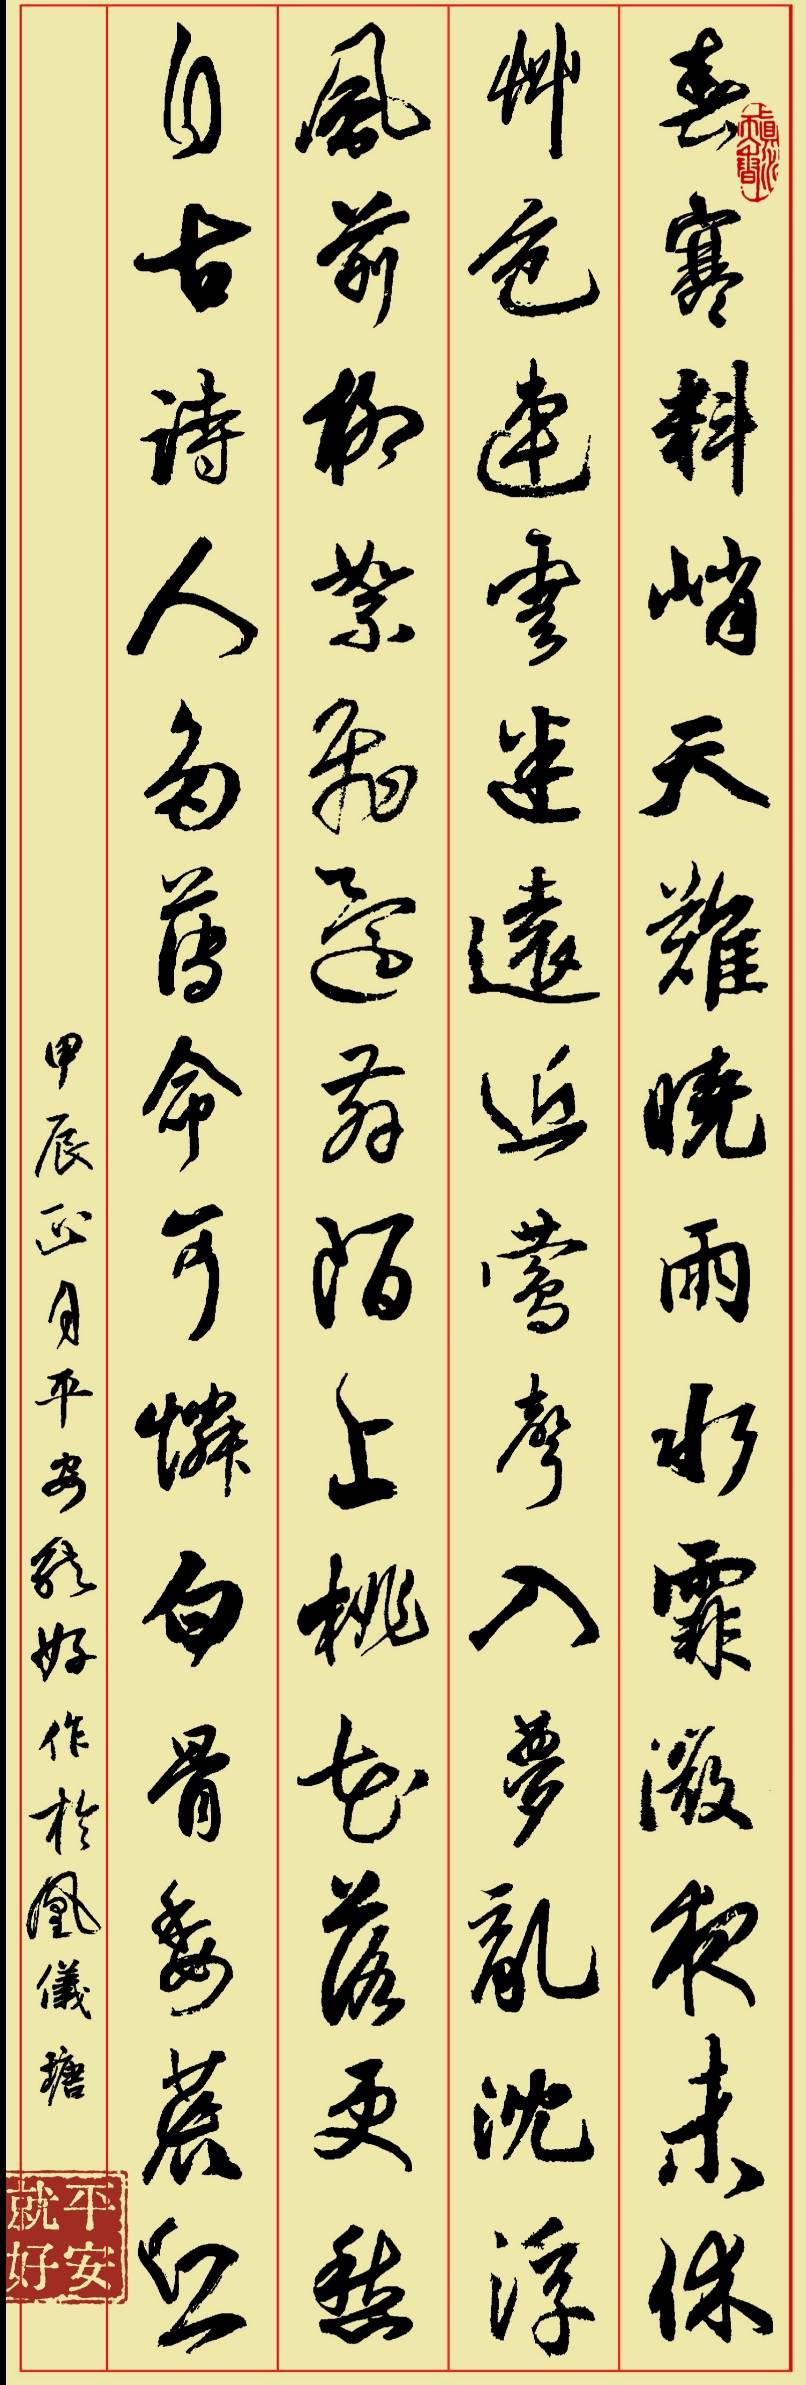 春寒料峭天難曉雨水霏微夜未休
艸色連雲迷遠近鶯聲入夢亂沈浮
風前柳絮飛還舞陌上桃花落更愁
自古詩人多薄命可憐白骨委荒丘
甲辰正月平安就好作於凰儀塘
平安
就好